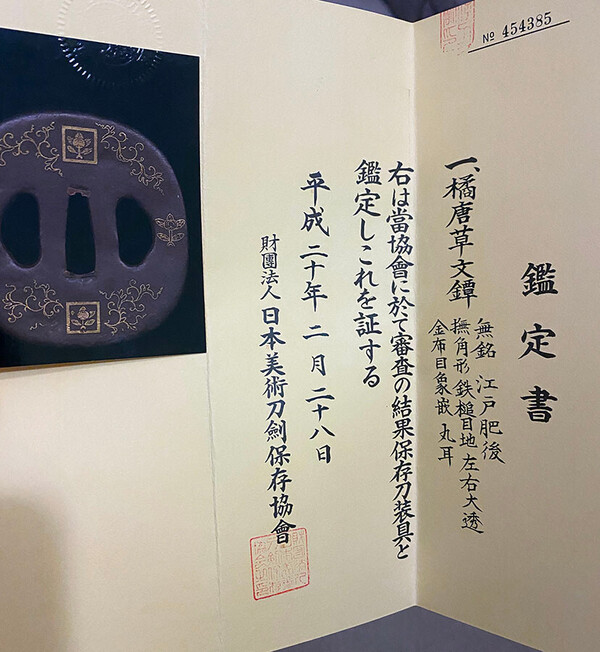 № 454385
鑑定書
一、橘唐草文鐔
無銘 江戸肥後
撫角形 鉄槌目地 左右大透
金布目象嵌 丸耳
右は當協會に於て審査の結果保存刀装具と
鑑定しこれを証する
平成二十年二月二十八日
財團法人日本美術刀劍保存協會